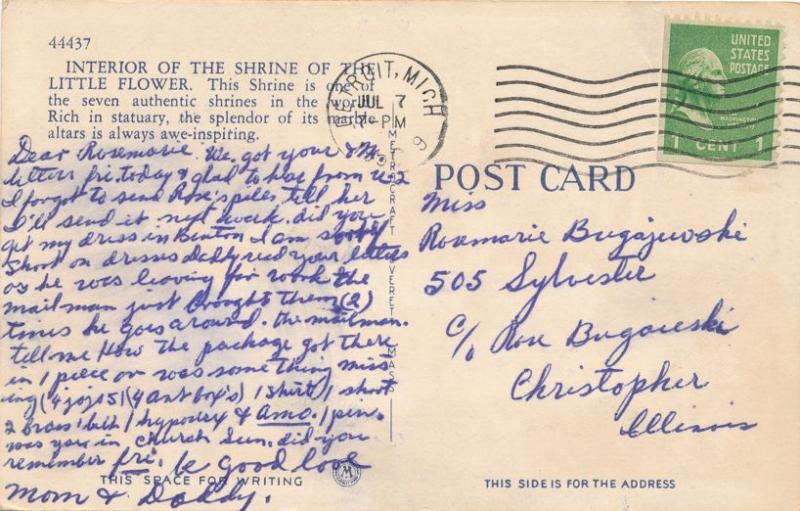 44437
INTERIOR OF THE SHRINE OF THE
LITTLE FLOWER. This Shrine is one of
the seven authentic shrines in the world.
Rich in statuary, the splendor of its marble
altars is always awe-inspiring.
DETROIT, MICH
JUL 7
PM
UNITED
STATES
POSTAGE
WASHINGTON
1 CENT 1
POST CARD
METROCRAFT, EVERETT, MASS.
Dear Rosemarie. We got your &
letters fri. today & glad to hear from u 2
I forgot to send Rose's pills tell her
I'll send it next week. did you
get my dress in Benton I am
short on dresses Daddy read your letters
as he was leaving for work the
mailman just brought them (2)
times he goes around. the mailman.
tell me How the package got there
in 1 piece or was something miss
ing (4 jojos) (4 ant box's) 1 shirt) 1 short
2 Brass 1 belt / & amo. 1 pin.
was you in Church Sun. did you
remember fri. be good love
Mom & Daddy.
Miss
Rosemarie Bugajewski
505 Sylvester
c/o Rose Bugaieski
Christopher
Illinois
THIS SPACE FOR WRITING
M
THIS SIDE IS FOR THE ADDRESS